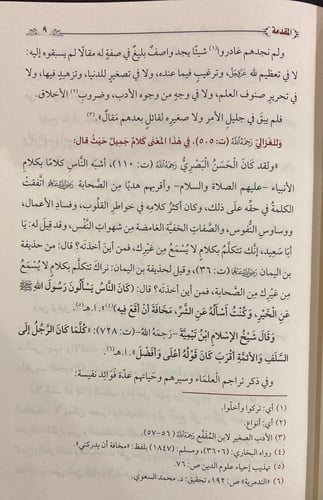 المقدمة
٩
ولم نجدهم غادروا(١) شيئًا يجد واصفٌ بليغٌ في صفةٍ له مقالًا لم يسبقوه إليه:
لا في تعظيم لله عَزَّوَجَلَّ، وترغيب فيما عنده، ولا في تصغيرٍ للدنيا، وتزهيد فيها، ولا
في تحرير صنوف العلم، ولا في وجهٍ من وجوه الأدب، وضروبِ(٢) الأخلاق.
فلم يبق في جليل الأمر ولا صغيره لقائل بعدهم مقال».(٣)
وللغزاليّ رَحِمَهُ اللَّهُ (ت: ٥٠٥). في هَذَا المَعْنَى كَلامٌ جَمِيلٌ حَيثُ قال:
«ولقد كانَ الحَسَنُ البَصْرِيُّ رَحِمَهُ اللَّهُ (ت: ١١٠)، أشبَهَ النَّاسِ كلامًا بكلامِ
الأنبياء -عليهم الصلاة والسلام- وأقربهم هديًا مِن الصَّحابة رَضِيَ اللَّهُ عَنْهُمْ اتَّفقتُ
الكلمةُ في حقِّه على ذلك، وكان أكثرُ كلامِه في خواطرِ القلُوب، وفسادِ الأعمال،
ووساوس النُّفوس، والصفاتِ الخفيَّة الغامضة مِن شهواتِ النَّفْس، وقد قيلَ له: يَا
أبا سَعِيد، إنَّك تتكلَّمُ بكلامٍ لا يُسْمَعُ مِن غيرِك، فمِن أين أخذتَه؟ قال: من حذيفة
بن اليمان رَضِيَ اللَّهُ عَنْهُ (ت: ٣٦)، وقيل لحذيفة بن اليمان: نراكَ تتكلَّم بكلامٍ لا يُسْمَعُ
مِن غيرِك مِن الصَّحابة، فمن أين أخذتَه؟ قال: (كانَ النَّاسُ يسألُون رَسُولَ اللهِ ﷺ
عَنِ الخَيْرِ، وكُنتُ أَسْأَلُهُ عَنِ الشَّرِّ، مخَافَةَ أنْ أقعَ فِيهِ)(٤)». ا.هـ(٥).
وَقَالَ شَيْخُ الإِسْلامِ ابْنُ تَيْمِيَّةَ -رَحِمَهُ اللهُ- (ت: ٧٢٨): «كُلَّمَا كَانَ الرَّجُلُ إِلَى
السَّلَفِ وَالأئمَّةِ أَقْرَبَ كَانَ قَوْلُهُ أَعْلَى وَأَفْضَلَ». ا.هـ(٦).
وفي ذكرِ تراجم العلمَاء وسيرهم وحياتهم عدّة فوَائد نفيسَة:
(١) أي: تركوا وأخلّوا.
(٢) أي: أنواع.
(٣) الأدب الصغير لابن المُقَفَّع رَحِمَهُ اللَّهُ (٥٦-٥٧)
(٤) رواه البخاري: (٣٦٠٦)، ومسلم: (١٨٤٧) بلفظ: «مخافة أن يدركني».
(٥) تهذيب إحياء علوم الدين ص: ٧٦.
(٦) «التدمرية» ص: ١٩٢، تحقيق: د. محمد السعوي.